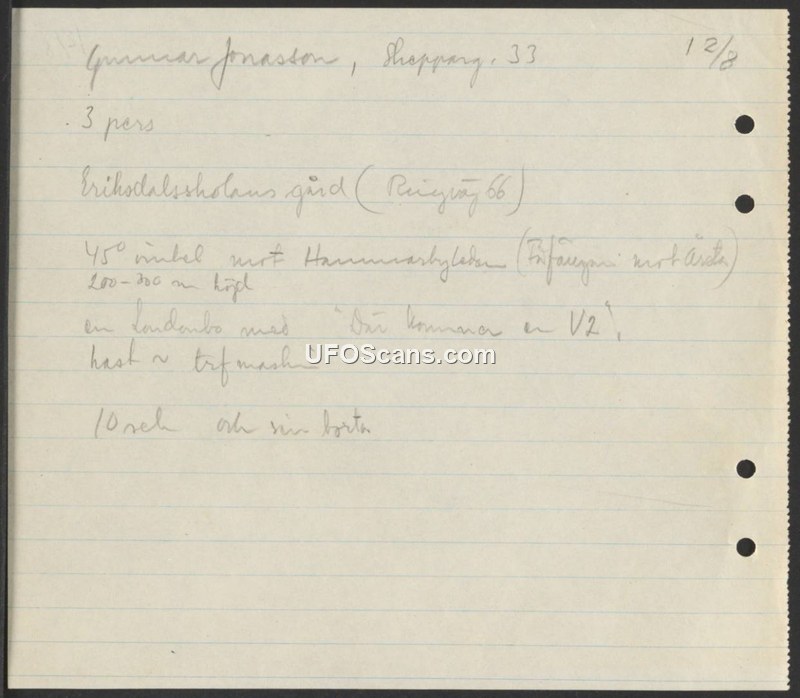 Gunnar Jonasson, Skepparg. 33 12/8
3 pers
Eriksdalsskolans gård (Ringväg 66)
45° vinkel mot Hammarbyleden ( mot Årsta)
200-300 m höjd
en Londonbo med "Där kommer en V2",
hast ~ trfmaskin
UFOScans.com
10 sek och sen borta